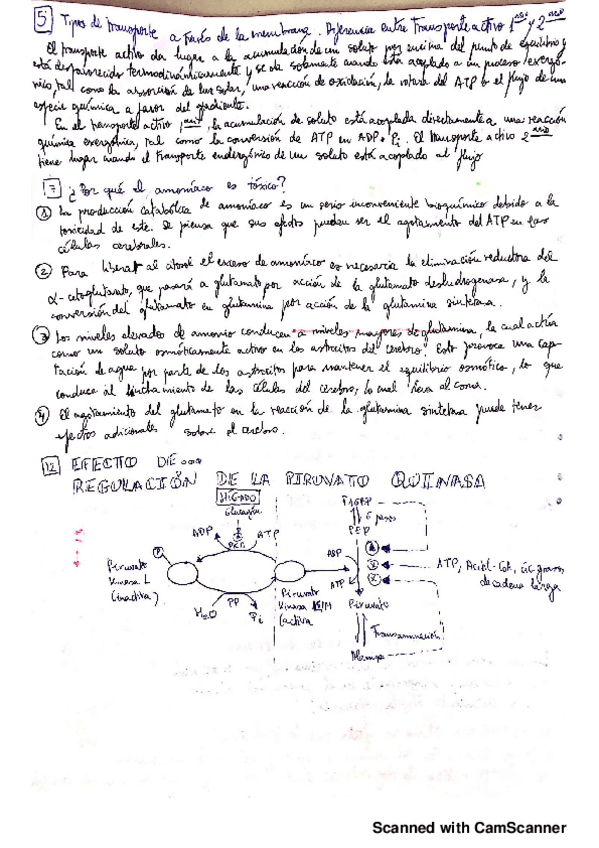 5 Tipos de transporte a través de la membrana. Diferencia entre transporte activo 1ario y 2ario
El transporte activo da lugar a la acumulación de un soluto por encima del punto de equilibrio y
está desfavorecido termodinámicamente y se da solamente cuando está acoplado a un proceso exergó-
nico, tal como la absorción de luz solar, una reacción de oxidación, la rotura del ATP o el flujo de una
especie química a favor del gradiente.
En el transporte activo 1ario, la acumulación de soluto está acoplada directamente a una reacción
química exergónica, tal como la conversión de ATP en ADP + Pi. El transporte activo 2ario
tiene lugar cuando el transporte endergónico de un soluto está acoplado al flujo
7 ¿Por qué el amoníaco es tóxico?
1 La producción catabólica de amoníaco es un serio inconveniente bioquímico debido a la
toxicidad de este. Se piensa que sus efectos puedan ser el agotamiento del ATP en las
células cerebrales.
2 Para liberar al el exceso de amoníaco es necesaria la eliminación reductora del
α-cetoglutarato, que pasará a glutamato por acción de la glutamato deshidrogenasa, y la
conversión del glutamato en glutamina por acción de la glutamina sintetasa.
3 Los niveles elevados de amonio conducen a niveles mayores de glutamina, la cual actúa
como un soluto osmóticamente activo en los astrocitos del cerebro. Esto provoca una cap-
tación de agua por parte de los astrocitos para mantener el equilibrio osmótico, lo que
conduce al hinchamiento de las células del cerebro, lo cual lleva al coma.
4 El agotamiento del glutamato en la reacción de la glutamina sintetasa puede tener
efectos adicionales sobre el cerebro.
12 EFECTO DE...
REGULACIÓN DE LA PIRUVATO QUINASA
HÍGADO
Glucagón
F16BP
6 pasos
PEP
ADP
PKA
ATP
P
Piruvato
kinasa L
(inactiva)
H2O
PP
Pi
Piruvato
kinasa L/M
(activa
ADP
ATP
ATP, Acetil-CoA, ác. grasos
de cadena larga
Piruvato
Transaminación
Alanina
Scanned with CamScanner